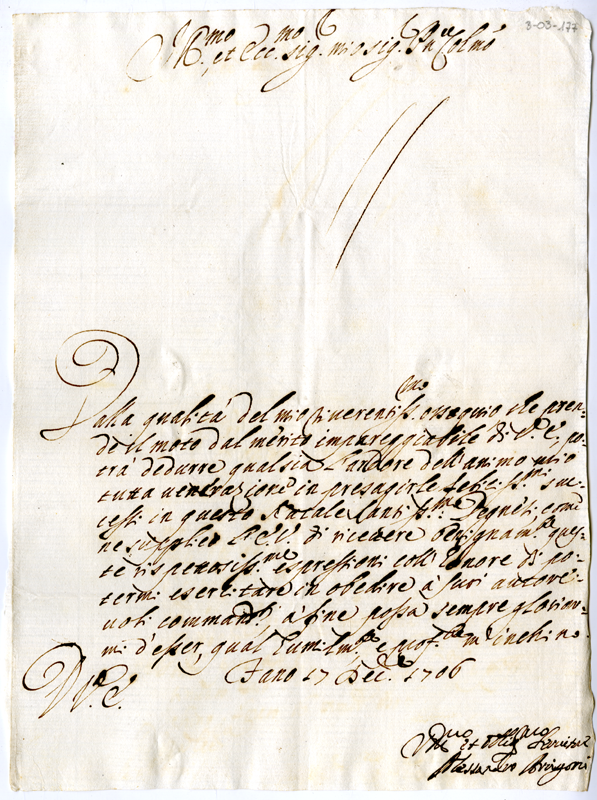 3-03-177
Ill.mo et Ecc.mo Sig. mio Sig. P.ne Colmo
Dalla qualità del mio riverentiss.mo ossequio che pren-
de il moto dal merito impareggiabile di V.E. po-
trà dedurre qualsia l'ardore dell'animo mio
tutta venerazione in presagirle felicissi.mi suc-
cessi in questo Natale santiss.mo Degnisi come
ne supplico l'E.V. di ricevere benignam.te ques-
te rispettosiss.me espressioni coll'honore di po-
termi esercitare in obedire à suoi autore-
voli commandi, à fine possa sempre gloriar-
mi d'esser, qual humilm.te e prof.te m'inchino.
Fano 17 Dec.e 1706
D.V.E.
Dmo et Obligmo Servitore
Alessandro